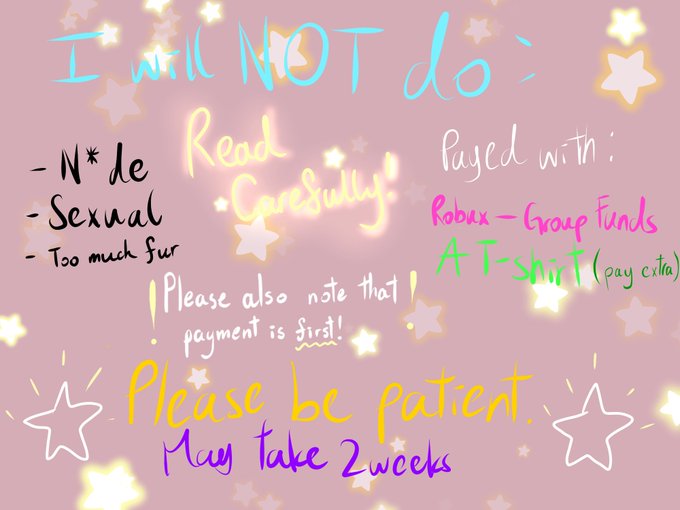 I will NOT do:
Read
Carefully!
- N*de
- Sexual
- Too much fur
Payed with:
Robux - Group Funds
A T-shirt (pay extra)
! Please also note that !
payment is first!
Please be patient.
May take 2 weeks